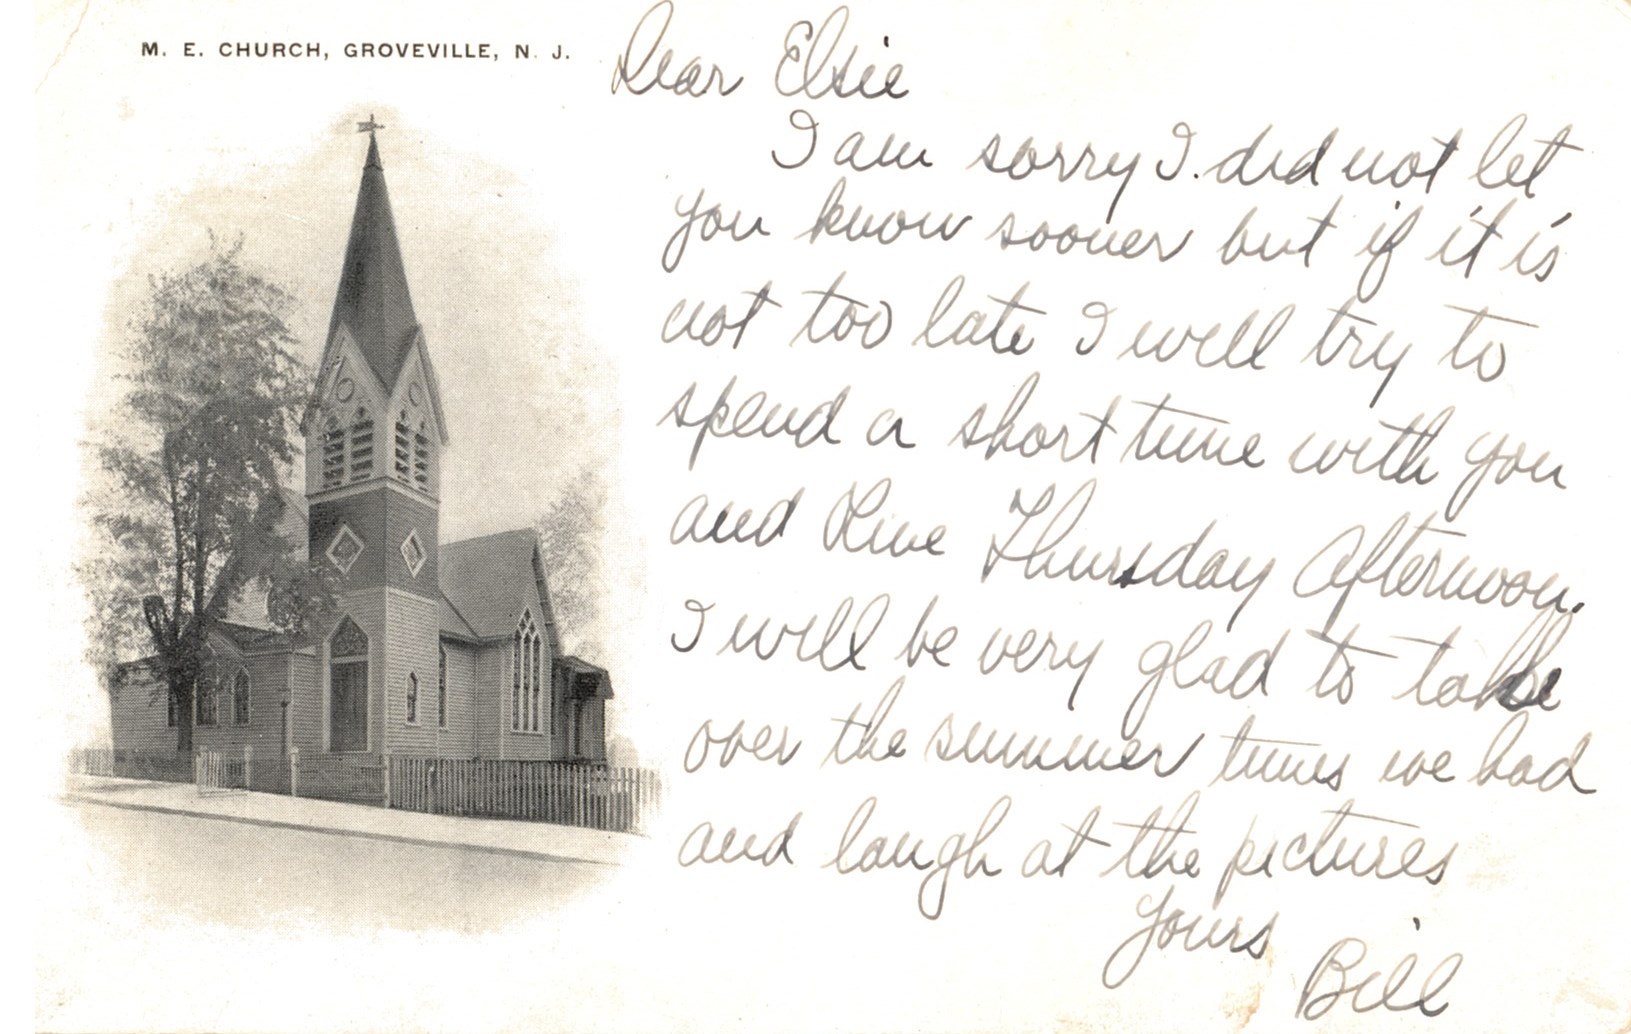 M. E. CHURCH, GROVEVILLE, N. J.
Dear Elsie
I am sorry I. did not let
you know sooner but if it is
not too late I well try to
spend a short time with you
and Thursday Afternoon.
I will be very glad to talk
over the summer times we had
and laugh at the pictures
Yours
Bill